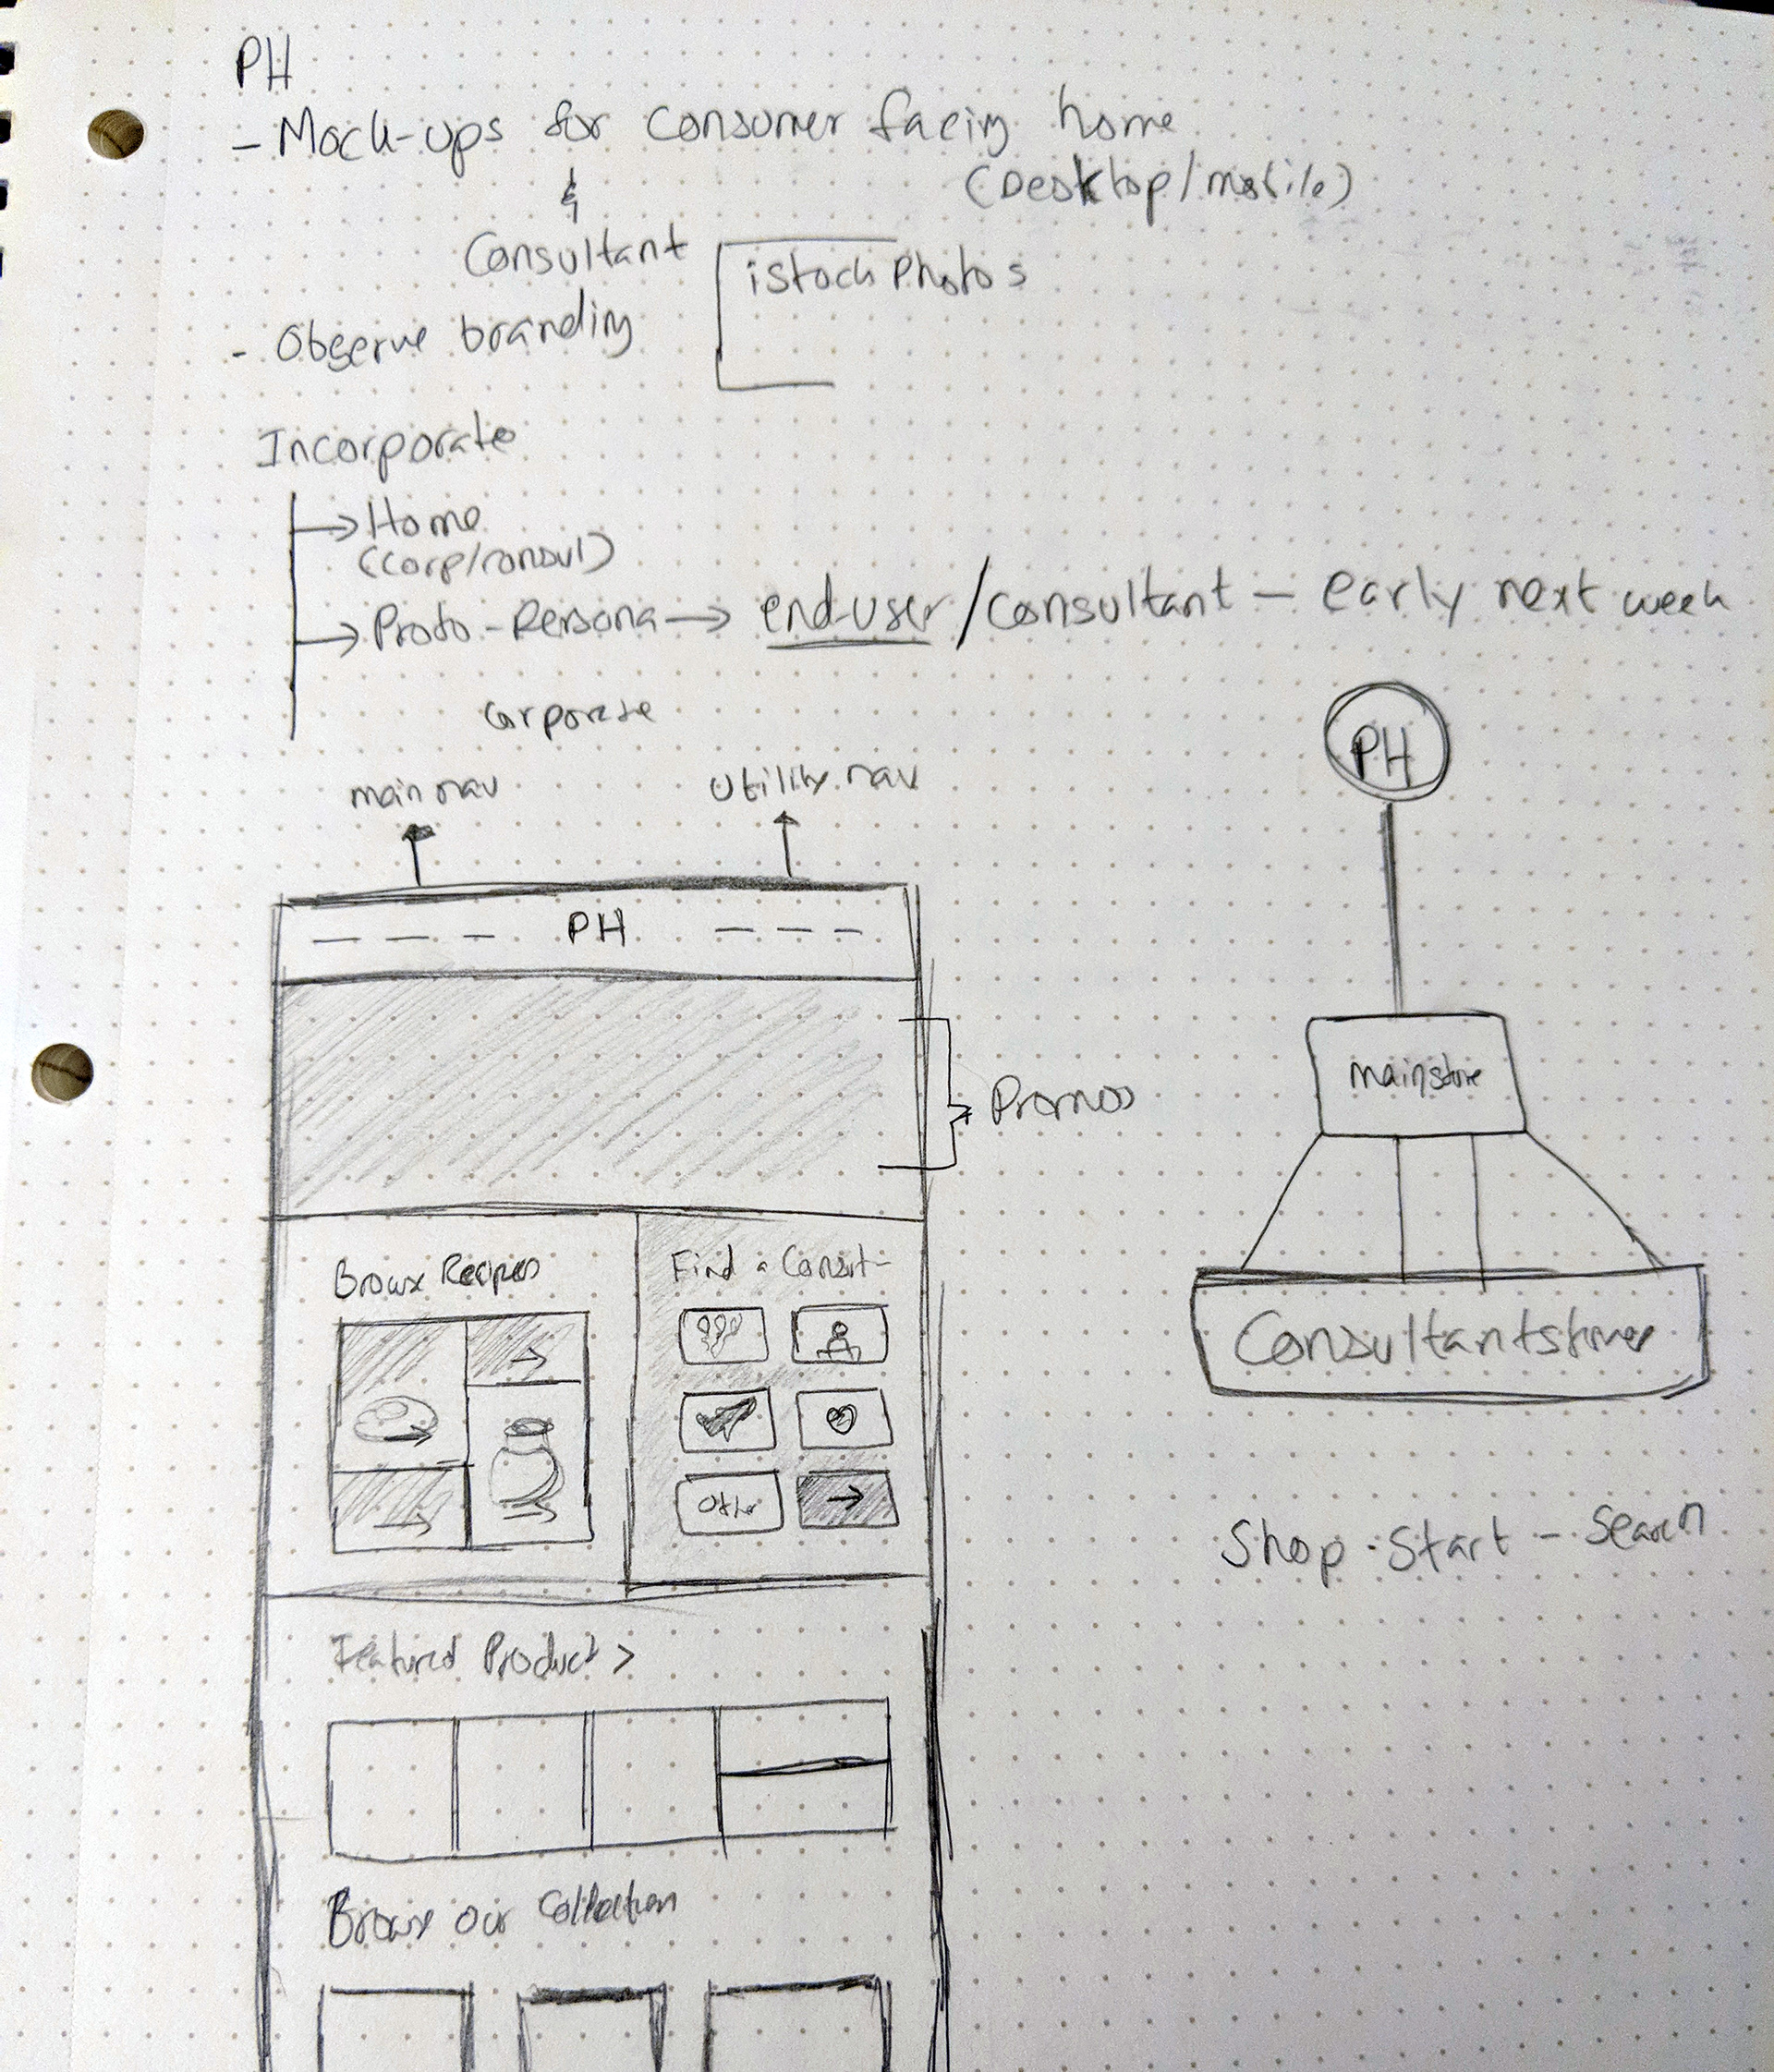 PH
- Mock-ups for consumer facing home
(Desktop/mobile)
&
Consultant
iStock Photos
- Observe branding
Incorporate
→ Home
(corp/consul)
→ Proto-Persona → end-user / consultant - early next week
Corporate
main nav
utility nav
PH
PH
Promos
mainstore
Browse Recipes
Find a Consult-
Consultantstores
Other
Shop - Start - Search
Featured Product >
Browse our Collection